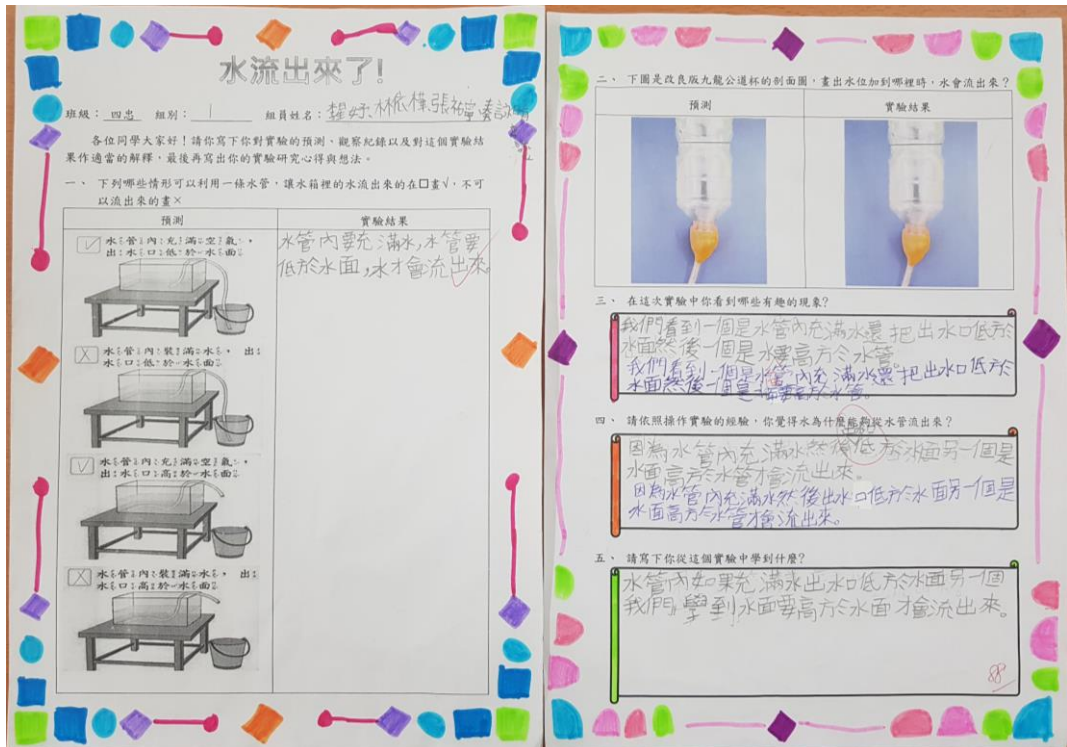 水流出來了!
班級：四忠 組別：1 組員姓名：
各位同學大家好！請你寫下你對實驗的預測、觀察紀錄以及對這個實驗結
果作適當的解釋，最後再寫出你的實驗研究心得與想法。
一、 下列哪些情形可以利用一條水管，讓水箱裡的水流出來的在□畫√，不可
以流出來的畫×
預測
實驗結果
√ 水管內充滿空氣，
出水口低於水面
水管內要充滿水,水管要
低於水面,水才會流出來。
X 水管內裝滿水，出
水口低於水面
√ 水管內充滿空氣，
出水口高於水面
X 水管內裝滿水，出
水口高於水面
二、 下圖是改良版九龍公道杯的剖面圖，畫出水位加到哪裡時，水會流出來？
預測
實驗結果
三、 在這次實驗中你看到哪些有趣的現象?
我們看到一個是水管內充滿水還把出水口低於
水面然後一個是水要高於水管。
我們看到一個是水管內充滿水還把出水口低於
水面然後一個是水面要高於水管。
四、 請依照操作實驗的經驗，你覺得水為什麼能夠從水管流出來?
因為水管內充滿水然後低於水面另一個是
水面高於水管才會流出來。
因為水管內充滿水然後出水口低於水面另一個是
水面高於水管才會流出來。
五、 請寫下你從這個實驗中學到什麼?
水管內如果充滿水出水口低於水面另一個
我們學到水面要高於水面才會流出來。
88